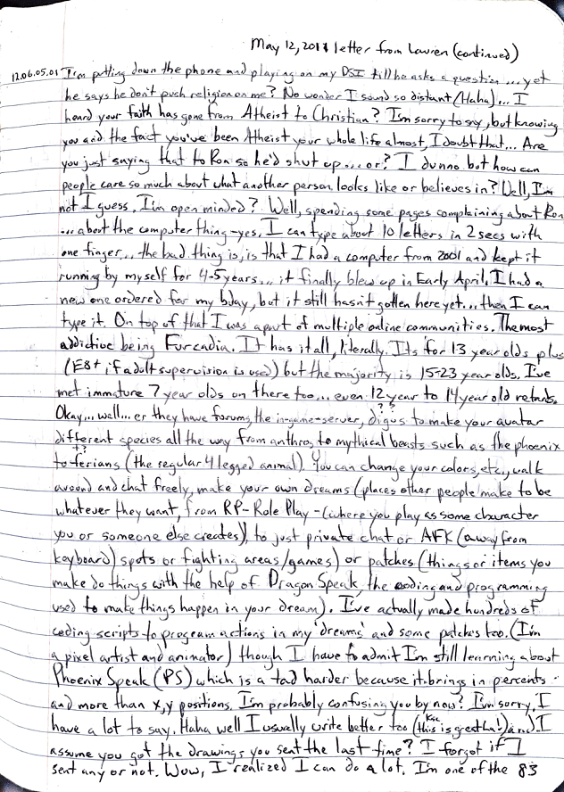 May 12, 2011 letter from Lauren (continued)
12.06.05.01 I'm putting down the phone and playing on my DSI till he asks a question... yet
he says he don't push religion on me? No wonder I sound so distant (Haha)... I
heard your faith has gone from Atheist to Christian? I'm sorry to say, but knowing
you and the fact you've been Atheist your whole life almost, I doubt that... Are
you just saying that to Ron so he'd shut up... or? I dunno but how can
people care so much about what another person looks like or believes in? Well, I'm
not I guess. I'm open minded? Well, spending some pages complaining about Ron
... about the computer thing - yes. I can type about 10 letters in 2 secs with
one finger... the bad thing is, is that I had a computer from 2001 and kept it
running by myself for 4-5 years... it finally blew up in Early April. I had a
new one ordered for my bday, but it still hasn't gotten here yet... then I can
type it. On top of that I was apart of multiple online communities. The most
addictive being Furcadia. It has it all, literally. Its for 13 year olds plus
(E8+ if adult supervision is used) but the majority is 15-23 year olds. I've
met immature 7 year olds on there too... even 12 year to 14 year old retards.
Okay... well... er they have forums, the in-game-server, digos to make your avatar
different species all the way from anthro, to mythical beasts such as the phoenix
to ferians (the regular 4 legged animal). You can change your colors, etc., walk
around and chat freely, make your own dreams (places other people make to be
whatever they want, from RP - Role Play - (where you play as some character
you or someone else creates)), to just private chat or AFK (away from
keyboard) spots or fighting areas/games) or patches (things or items you
make do things with the help of Dragon Speak, the coding and programming
used to make things happen in your dream). I've actually made hundreds of
coding scripts to program actions in my 'dreams' and some patches too. (I'm
a pixel artist and animator) though I have to admit I'm still learning about
Phoenix Speak (PS) which is a tad harder because it brings in percents
and more than x,y positions. I'm probably confusing you by now? I'm sorry, I
have a lot to say. Haha well I usually write better too (this is great ha!) and I
assume you got the drawings you sent the last time? I forgot if I
sent any or not. Wow, I realized I can do a lot. I'm one of the 83